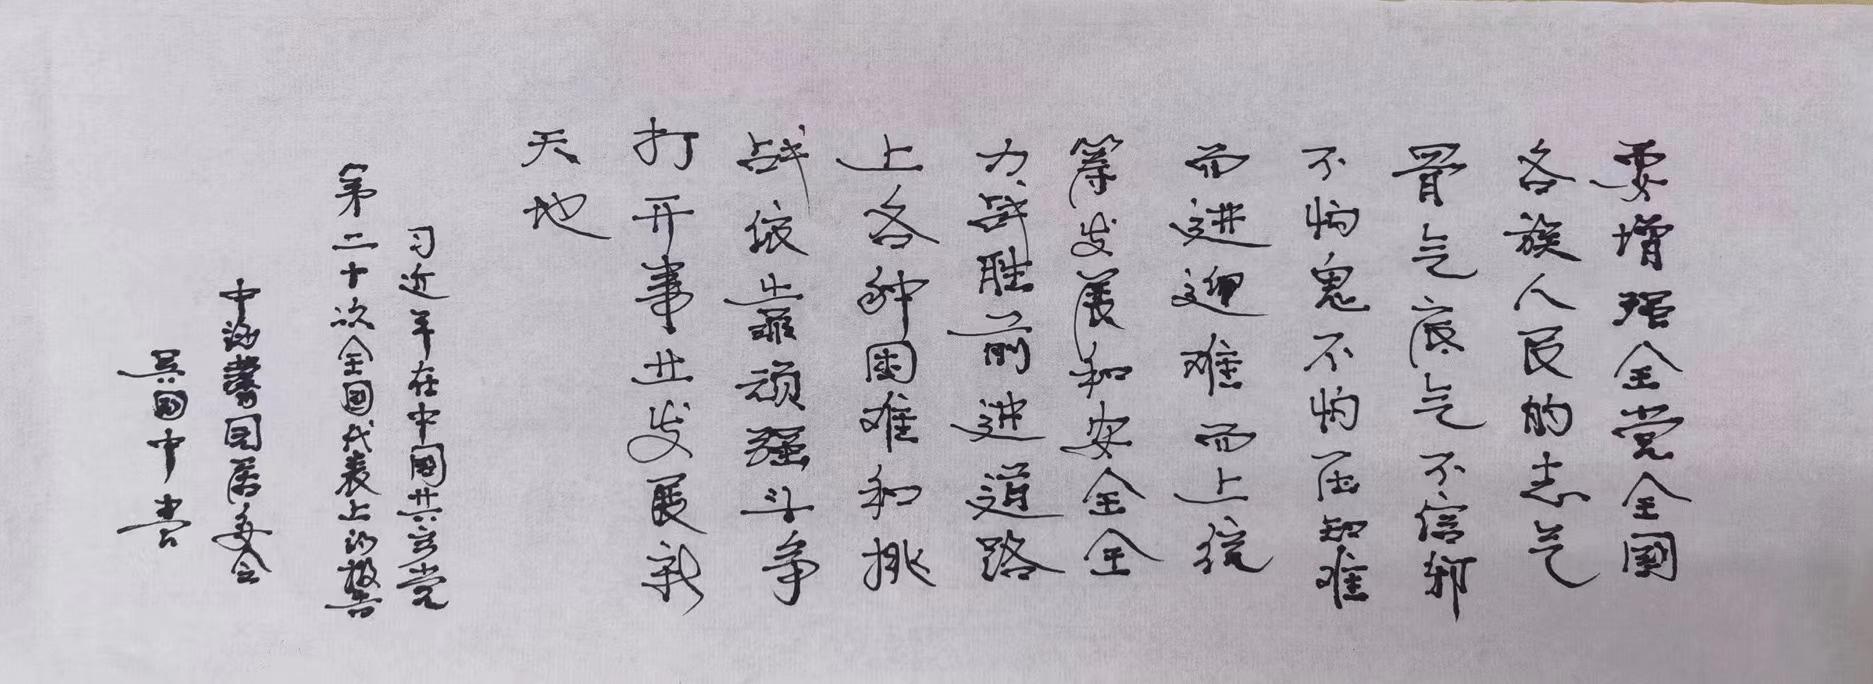 要增强全党全国
各族人民的志气
骨气底气不信邪
不怕鬼不怕压知难
而进迎难而上统
筹发展和安全全
力战胜前进道路
上各种困难和挑
战依靠顽强斗争
打开事业发展新
天地
习近平在中国共产党
第二十次全国代表上的报告
中海馨园居委会
吴国中书